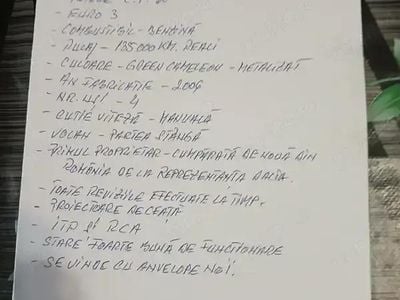 - EURO 3
- COMBUSTIBIL - BENZINĂ
- RULAJ - 135000 KM. REALI
- CULOARE - GREEN CAMELEON - METALIZAT
- AN FABRICATIE - 2006
- NR. UȘI - 4
- CUTIE VITEZĂ - MANUALĂ
- VOLAN - PARTEA STÂNGĂ
- PRIMUL PROPRIETAR - CUMPĂRATĂ DE NOUĂ DIN
ROMÂNIA DE LA REPREZENTANȚA DACIA.
- TOATE REVIZIILE EFECTUATE LA TIMP.
- PROIECTOARE DE CEAȚĂ
- ITP ȘI RCA
- STARE FOARTE BUNĂ DE FUNCTIONARE
- SE VINDE CU ANVELOPE NOI.